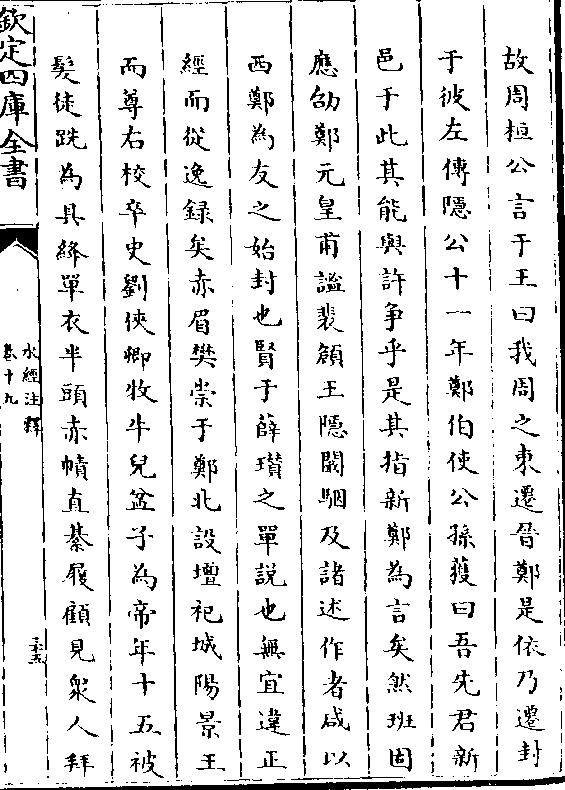 故周桓公言于王曰我周之東遷晉鄭是依乃遷封
于彼左傳隱公十一年鄭伯使公孫獲曰吾先君新
邑于此其能與許争乎是其指新鄭為言矣然班固
應劭鄭元皇甫謐裴頠王隱闞駰及諸述作者咸以
西鄭為友之始封也賢于薛瓚之單說也無宜違正
經而從逸録矣赤眉樊崇于鄭北設壇祀城陽景王
而尊右校卒史劉俠卿牧牛兒盆子為帝年十五被
髮徒跣為具絳單衣半頭赤幘直綦履顧見衆人拜
欽定四庫全書
水經注釋
卷十九
三十五